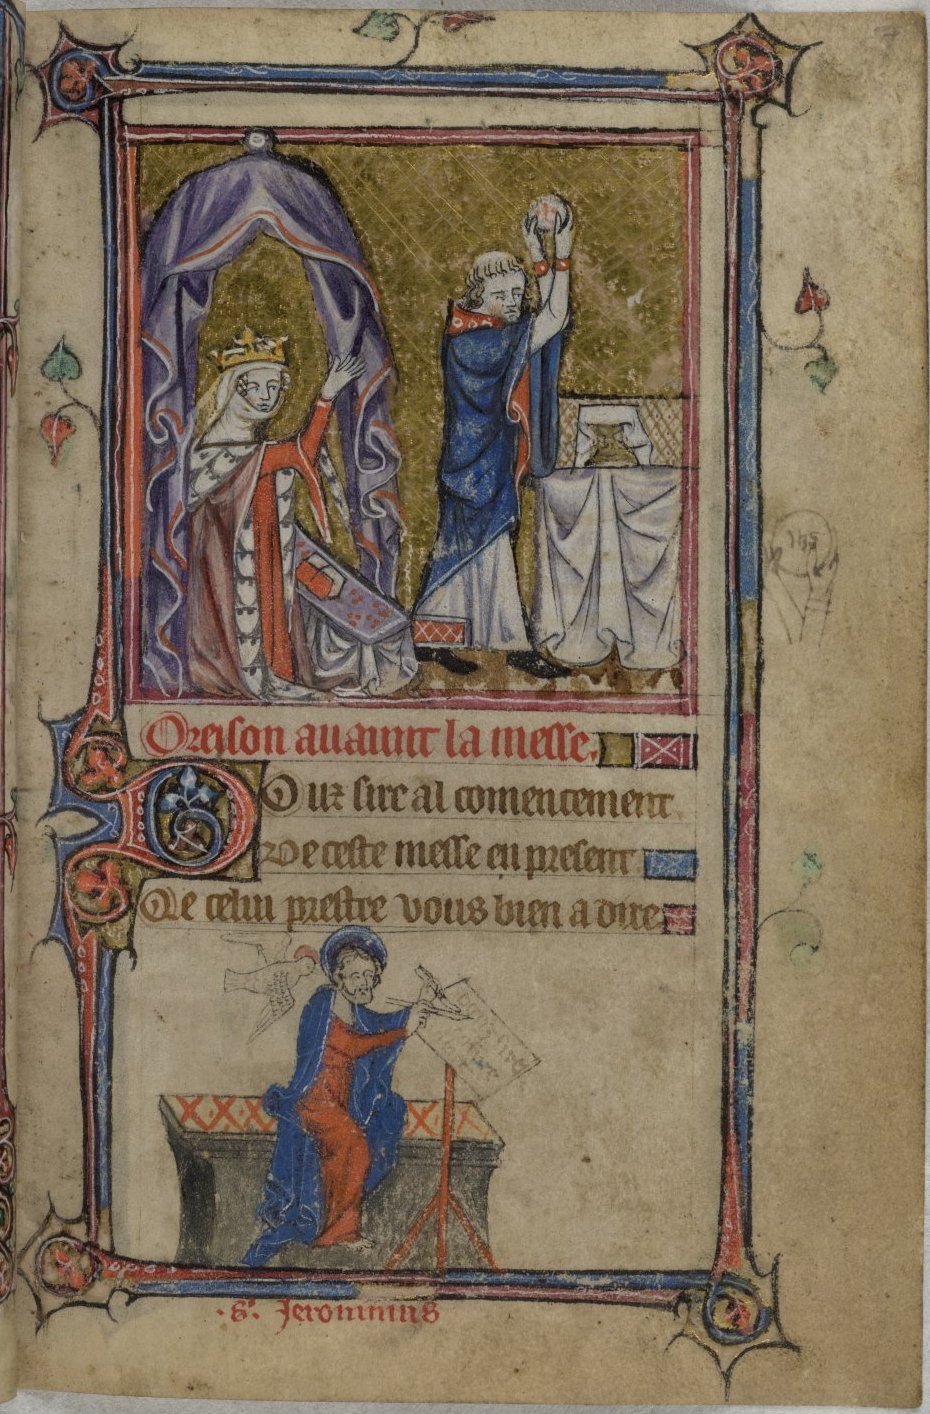 Oreison auaunt la messe.
Our sire al comencement
De ceste messe en present
Qe celui prestre vous bien a dire
.S'. Jeronimus